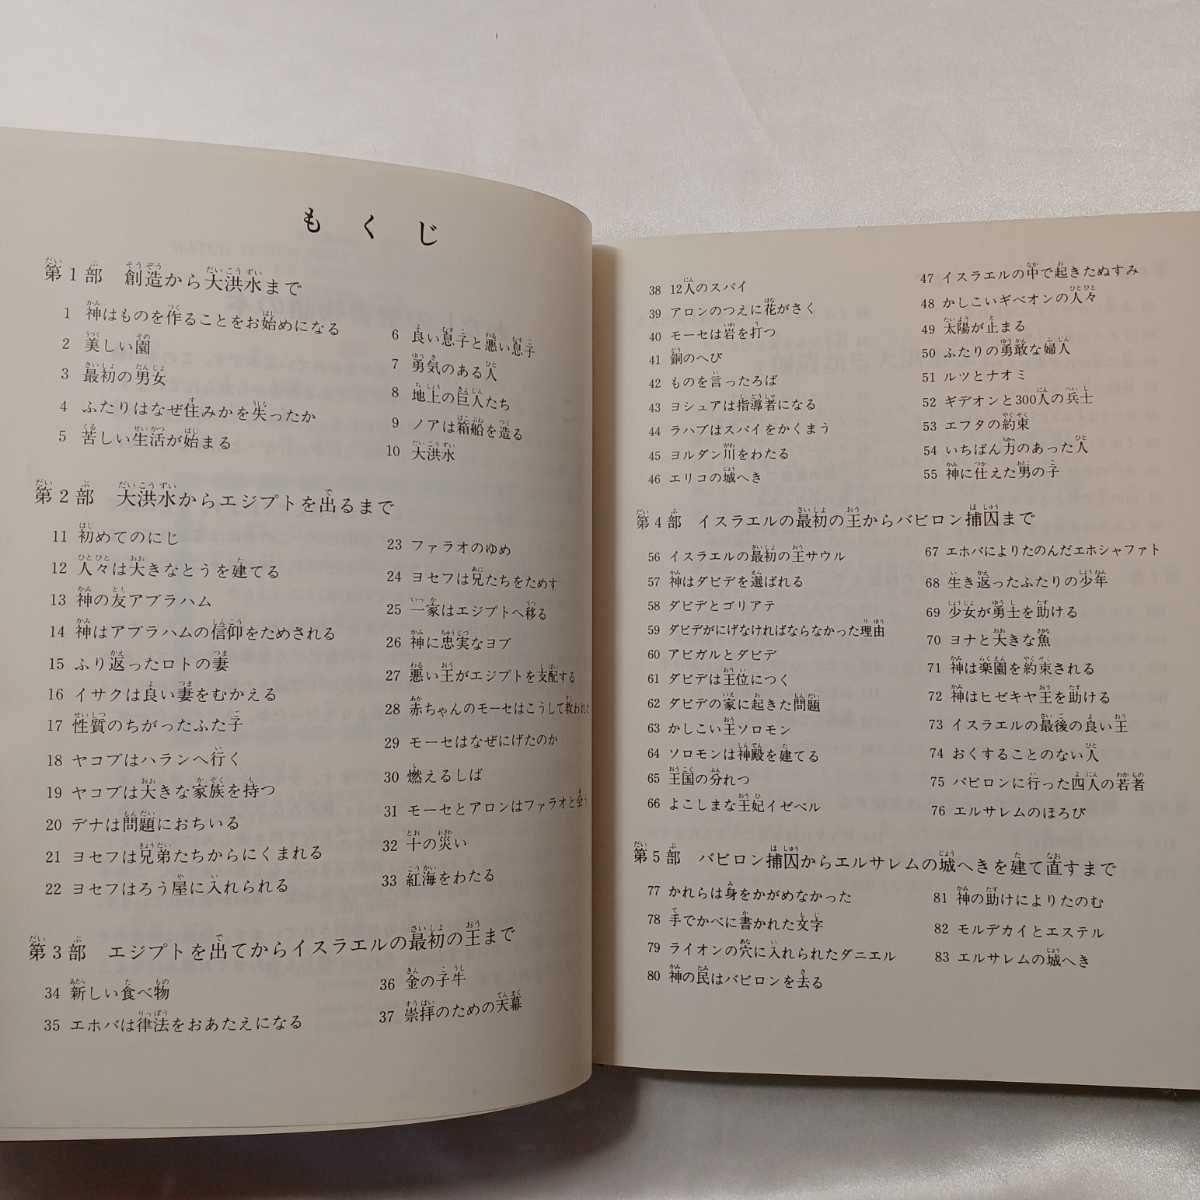 もくじ
第1部 創造から大洪水まで
1 神はものを作ることをお始めになる
2 美しい園
3 最初の男女
4 ふたりはなぜ住みかを失ったか
5 苦しい生活が始まる
6 良い息子と悪い息子
7 勇気のある人
8 地上の巨人たち
9 ノアは箱船を造る
10 大洪水
第2部 大洪水からエジプトを出るまで
11 初めてのにじ
12 人々は大きなとうを建てる
13 神の友アブラハム
14 神はアブラハムの信仰をためされる
15 ふり返ったロトの妻
16 イサクは良い妻をむかえる
17 性質のちがったふた子
18 ヤコブはハランへ行く
19 ヤコブは大きな家族を持つ
20 デナは問題におちいる
21 ヨセフは兄弟たちからにくまれる
22 ヨセフはろう屋に入れられる
23 ファラオのゆめ
24 ヨセフは兄たちをためす
25 一家はエジプトへ移る
26 神に忠実なヨブ
27 悪い王がエジプトを支配する
28 赤ちゃんのモーセはこうして救われた
29 モーセはなぜにげたのか
30 燃えるしば
31 モーセとアロンはファラオと会う
32 十の災い
33 紅海をわたる
第3部 エジプトを出てからイスラエルの最初の王まで
34 新しい食べ物
35 エホバは律法をおあたえになる
36 金の子牛
37 崇拝のための天幕
38 12人のスパイ
39 アロンのつえに花がさく
40 モーセは岩を打つ
41 銅のへび
42 ものを言ったろば
43 ヨシュアは指導者になる
44 ラハブはスパイをかくまう
45 ヨルダン川をわたる
46 エリコの城へき
47 イスラエルの中で起きたぬすみ
48 かしこいギベオンの人々
49 太陽が止まる
50 ふたりの勇敢な婦人
51 ルツとナオミ
52 ギデオンと300人の兵士
53 エフタの約束
54 いちばん力のあった人
55 神に仕えた男の子
第4部 イスラエルの最初の王からバビロン捕囚まで
56 イスラエルの最初の王サウル
57 神はダビデを選ばれる
58 ダビデとゴリアテ
59 ダビデがにげなければならなかった理由
60 アビガルとダビデ
61 ダビデは王位につく
62 ダビデの家に起きた問題
63 かしこい王ソロモン
64 ソロモンは神殿を建てる
65 王国の分れつ
66 よこしまな王妃イゼベル
67 エホバによりたのんだエホシャファト
68 生き返ったふたりの少年
69 少女が勇士を助ける
70 ヨナと大きな魚
71 神は楽園を約束される
72 神はヒゼキヤ王を助ける
73 イスラエルの最後の良い王
74 おくすることのない人
75 バビロンに行った四人の若者
76 エルサレムのほろび
第5部 バビロン捕囚からエルサレムの城へきを建て直すまで
77 かれらは身をかがめなかった
78 手でかべに書かれた文字
79 ライオンの穴に入れられたダニエル
80 神の民はバビロンを去る
81 神の助けによりたのむ
82 モルデカイとエステル
83 エルサレムの城へき